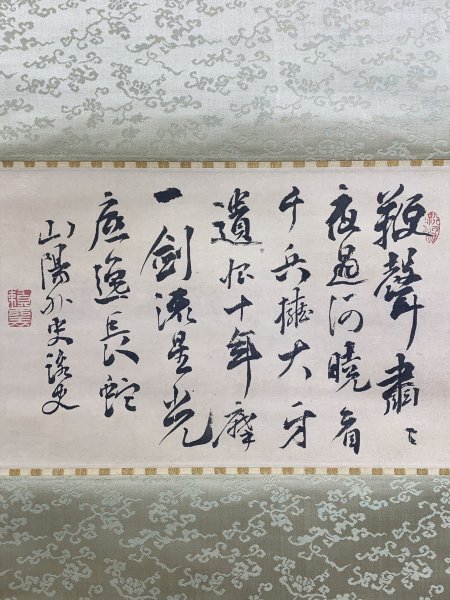 鞭聲肅〻
夜過河曉看
千兵擁大牙
遺恨十年磨
一劍流星光
底逸長蛇
山陽外史詠史